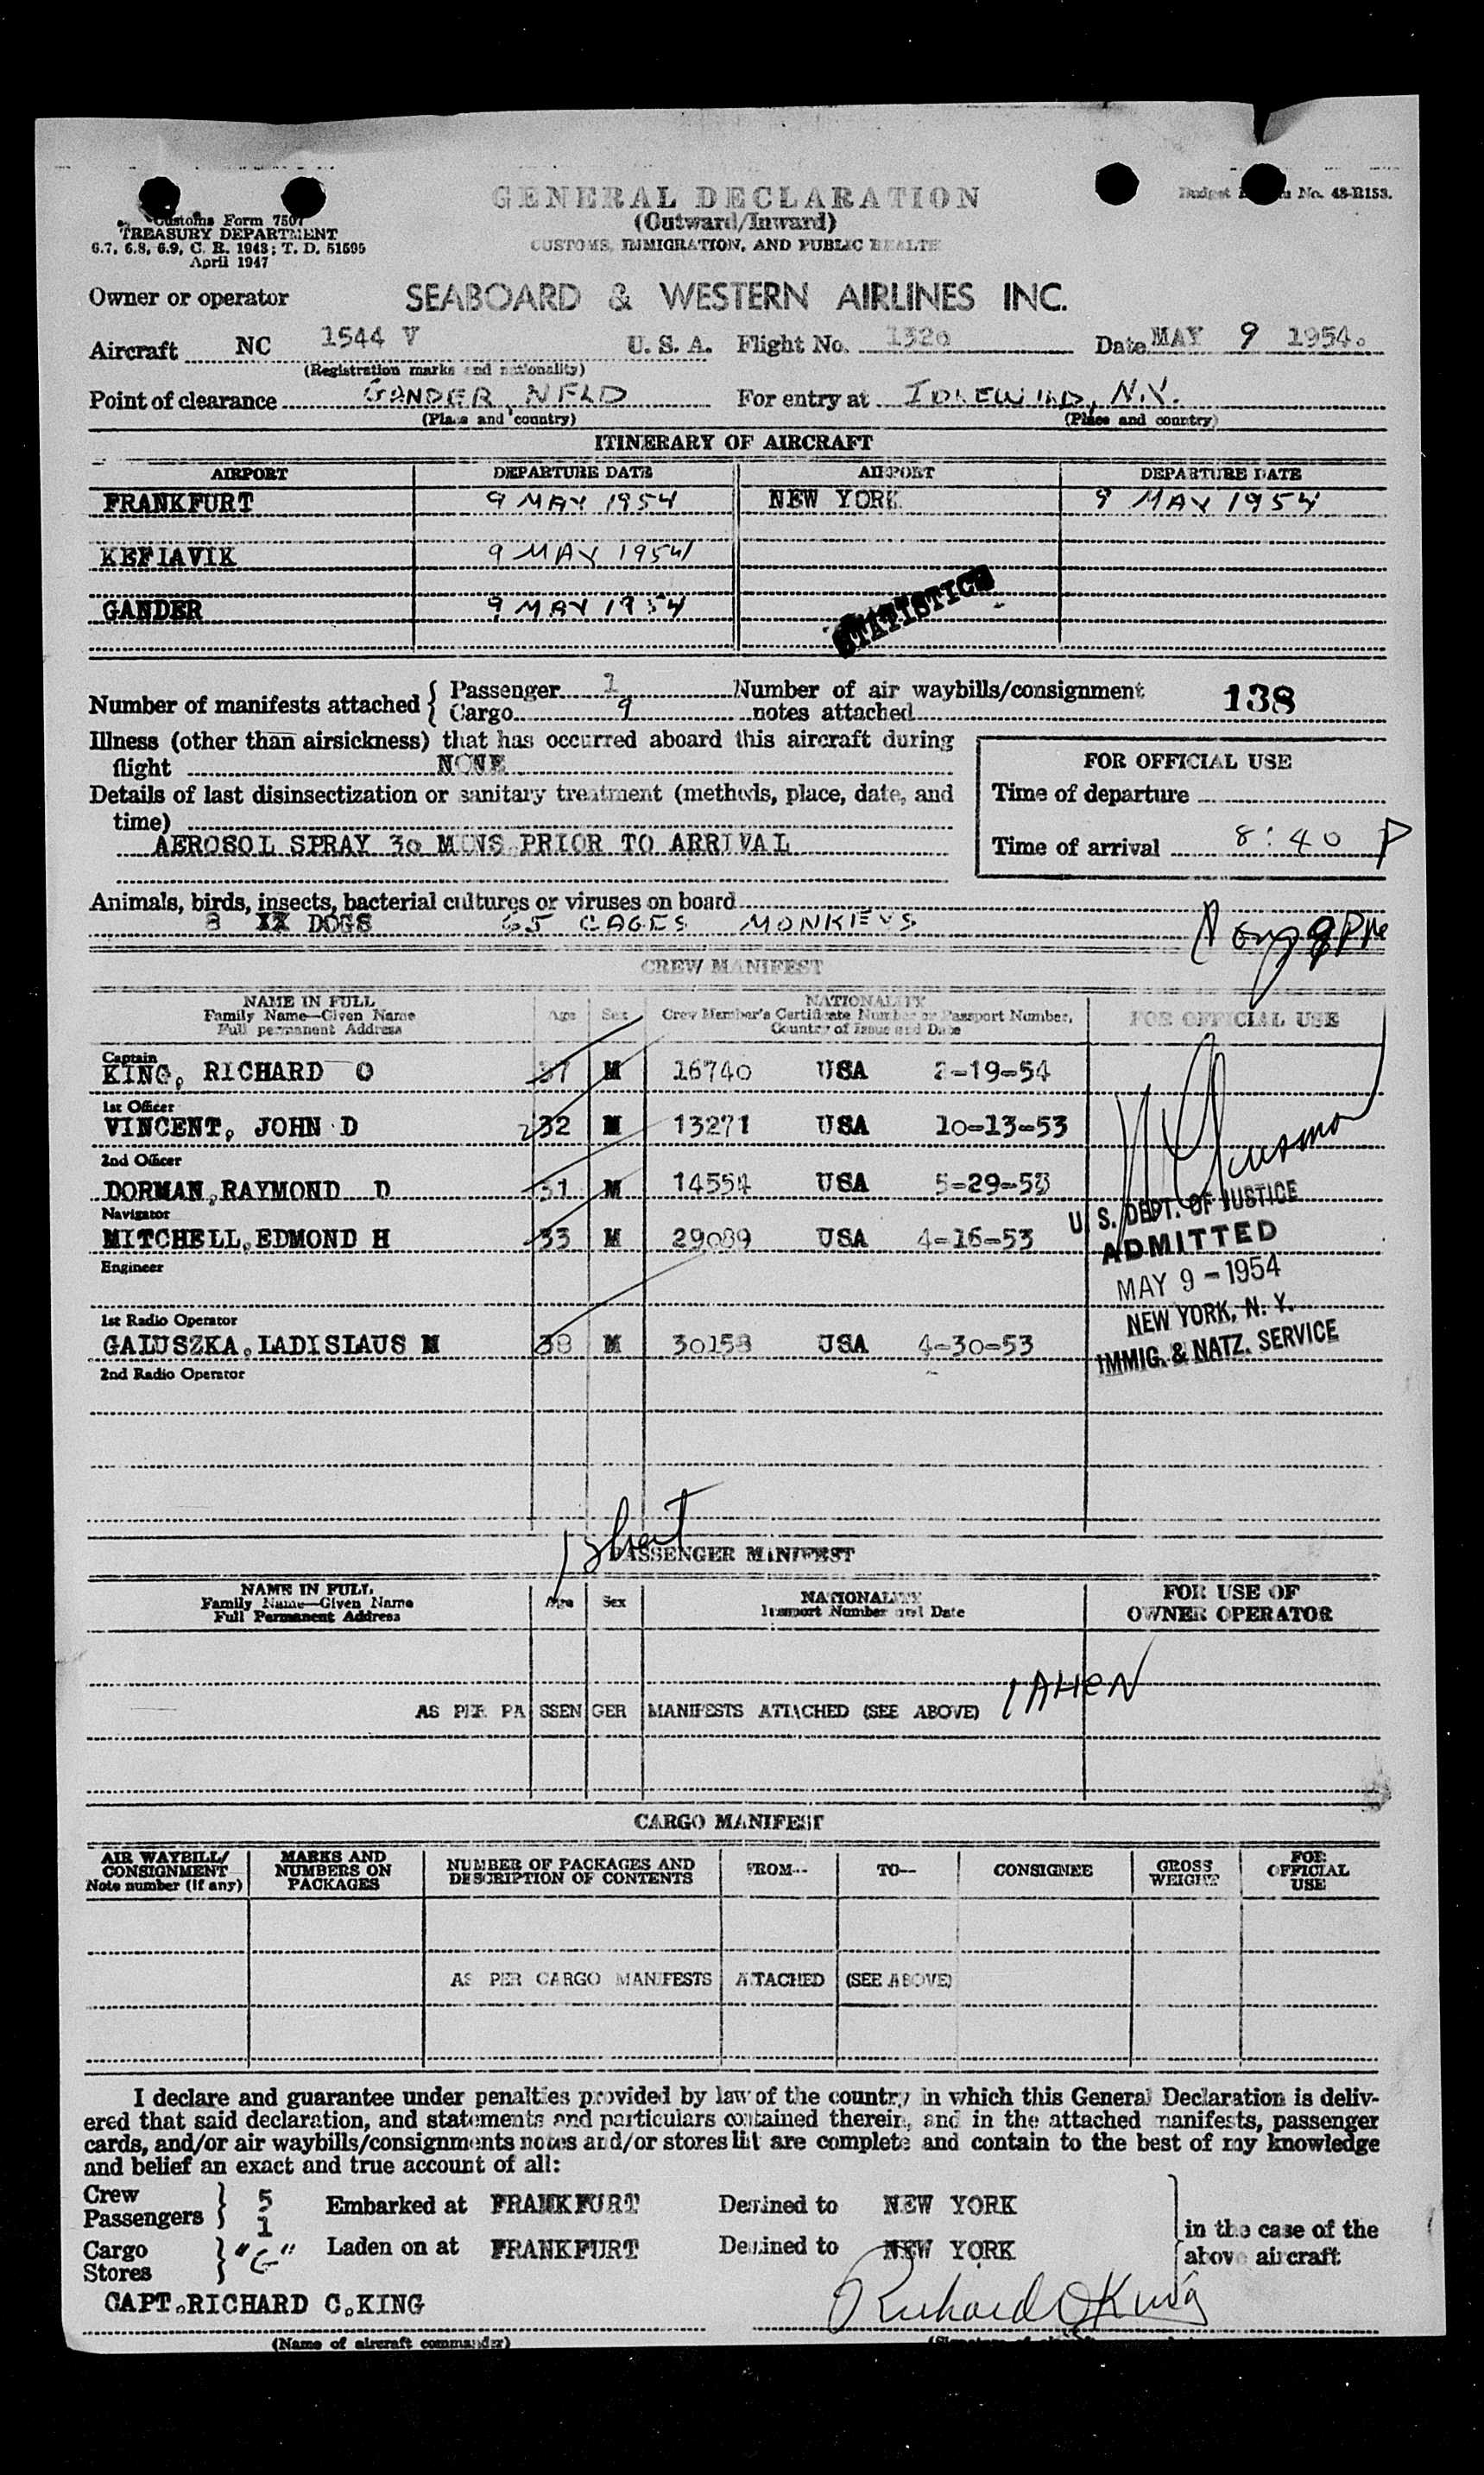 GENERAL DECLARATION
(Outward/Inward)
CUSTOMS, IMMIGRATION, AND PUBLIC HEALTH
Customs Form 7507
TREASURY DEPARTMENT
6.7, 6.8, 6.9, C. R. 1943; T. D. 51595
April 1947
Budget No. 48-R153.
Owner or operator SEABOARD & WESTERN AIRLINES INC.
Aircraft NC 1544 V U. S. A. Flight No. 132o Date MAY 9 1954.
(Registration marks and nationality)
Point of clearance GANDER, NFLD For entry at IDLEWILD, N.Y.
(Place and country) (Place and country)
ITINERARY OF AIRCRAFT
AIRPORT DEPARTURE DATE AIRPORT DEPARTURE DATE
FRANKFURT 9 MAY 1954 NEW YORK 9 MAY 1954
KEFLAVIK 9 MAY 1954
GANDER 9 MAY 1954
STATISTICS
Number of manifests attached { Passenger 1 Number of air waybills/consignment 138
Cargo 9 notes attached
Illness (other than airsickness) that has occurred aboard this aircraft during
flight NONE
Details of last disinsectization or sanitary treatment (methods, place, date, and
time)
AEROSOL SPRAY 3o MINS PRIOR TO ARRIVAL
FOR OFFICIAL USE
Time of departure
Time of arrival 8:40 P
Animals, birds, insects, bacterial cultures or viruses on board
8 XX DOGS 65 CAGES MONKIEYS
9 PM
CREW MANIFEST
NAME IN FULL
Family Name—Given Name
Full permanent Address
Age Sex
NATIONALITY
Crew Member's Certificate Number or Passport Number,
Country of Issue and Date
FOR OFFICIAL USE
Captain
KING, RICHARD O 37 M 1674o USA 2-19-54
1st Officer
VINCENT, JOHN D 32 M 13271 USA 1o-13-53
2nd Officer
DORMAN, RAYMOND D 31 M 14554 USA 5-29-53
Navigator
MITCHELL, EDMOND H 33 M 29o89 USA 4-16-53
Engineer
1st Radio Operator
GALUSZKA, LADISLAUS M 38 M 3o158 USA 4-3o-53
2nd Radio Operator
U. S. DEPT. OF JUSTICE
ADMITTED
MAY 9 - 1954
NEW YORK, N. Y.
IMMIG. & NATZ. SERVICE
1 sheet
PASSENGER MANIFEST
NAME IN FULL
Family Name—Given Name
Full Permanent Address
Age Sex
NATIONALITY
Passport Number and Date
FOR USE OF
OWNER OPERATOR
1 ALIEN
AS PER PASSENGER MANIFESTS ATTACHED (SEE ABOVE)
CARGO MANIFEST
AIR WAYBILL/
CONSIGNMENT
Note number (if any)
MARKS AND
NUMBERS ON
PACKAGES
NUMBER OF PACKAGES AND
DESCRIPTION OF CONTENTS
FROM— TO— CONSIGNEE
GROSS
WEIGHT
FOR
OFFICIAL
USE
AS PER CARGO MANIFESTS ATTACHED (SEE ABOVE)
I declare and guarantee under penalties provided by law of the country in which this General Declaration is deliv-
ered that said declaration, and statements and particulars contained therein, and in the attached manifests, passenger
cards, and/or air waybills/consignments notes and/or stores list are complete and contain to the best of my knowledge
and belief an exact and true account of all:
Crew } 5 Embarked at FRANKFURT Destined to NEW YORK
Passengers 1
in the case of the
above aircraft
Cargo } "G" Laden on at FRANKFURT Destined to NEW YORK
Stores
CAPT. RICHARD C. KING Richard O King
(Name of aircraft commander)